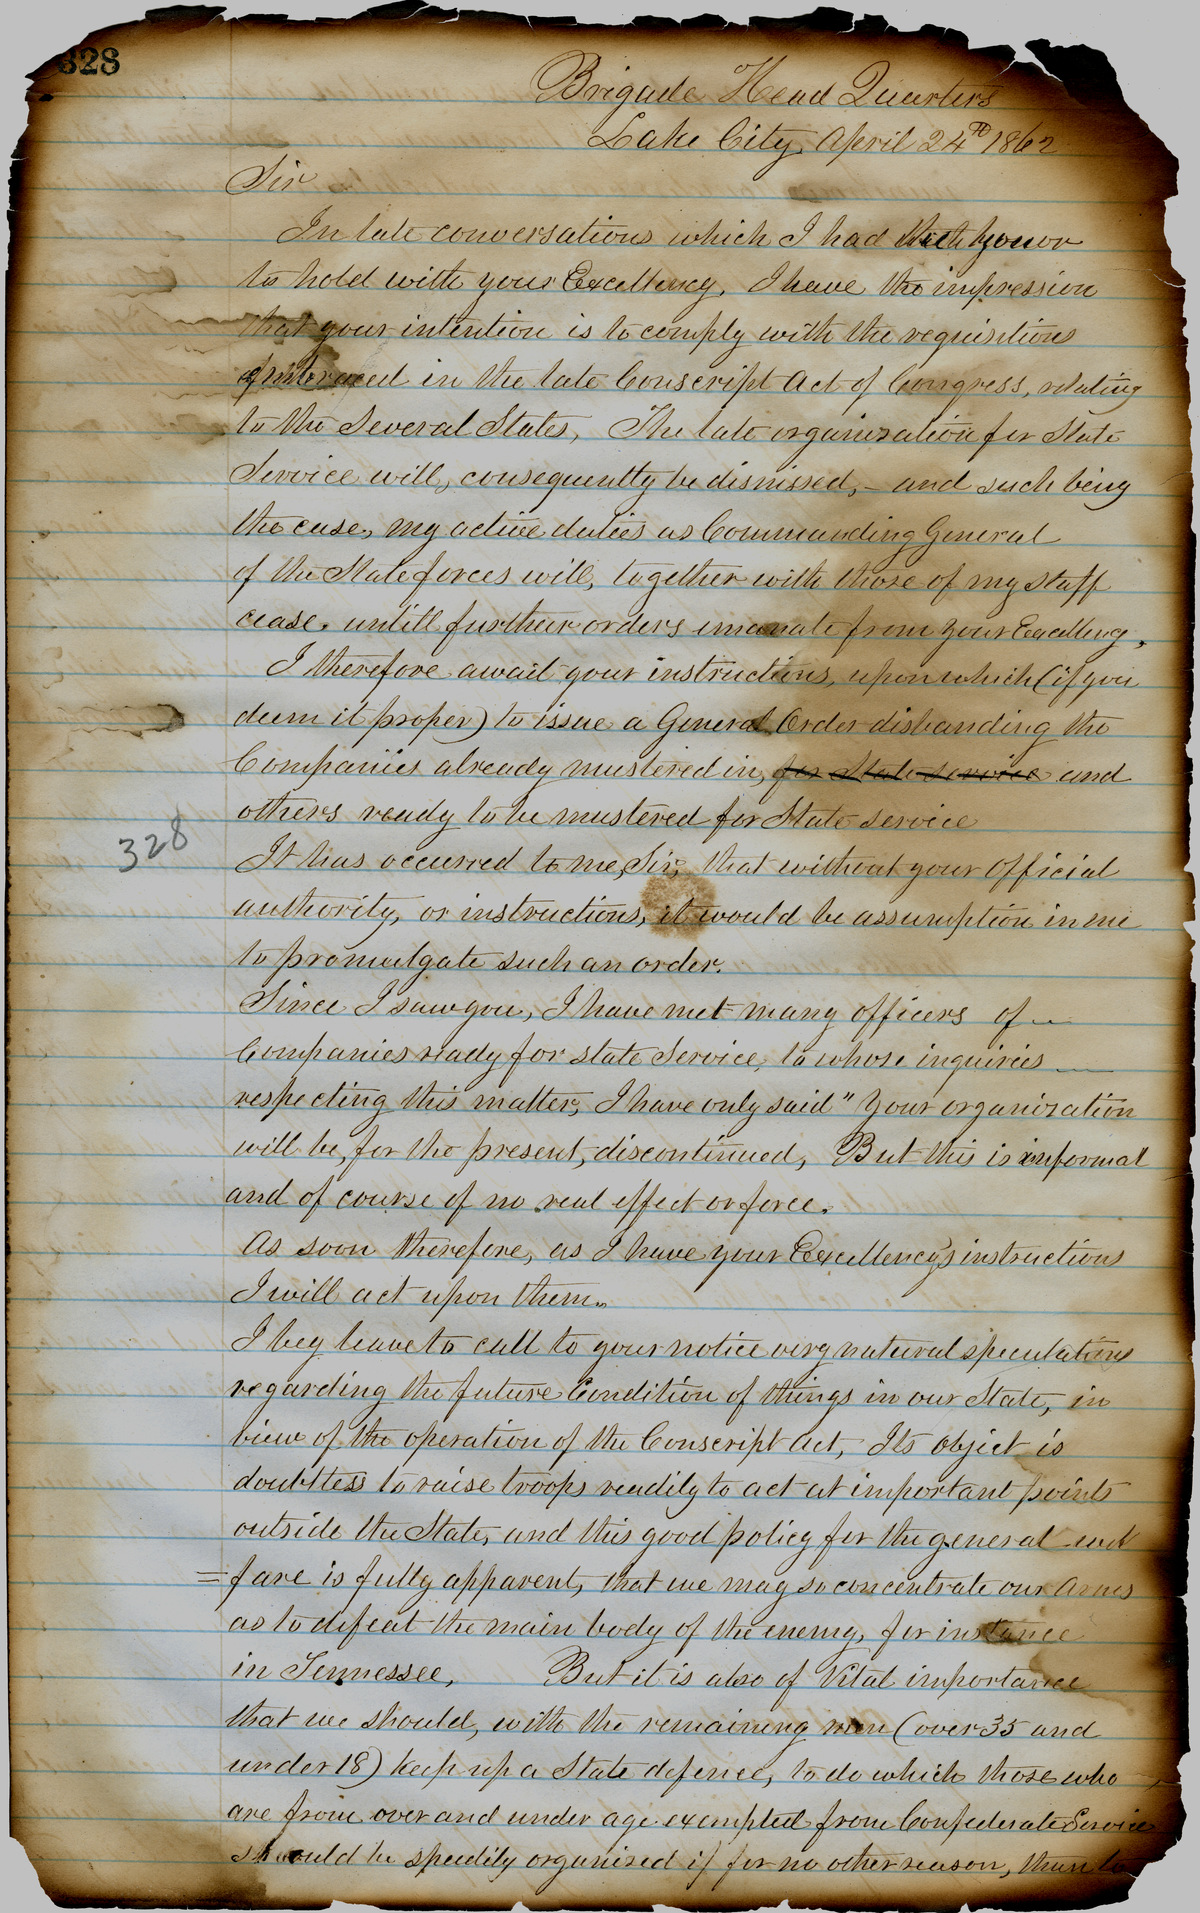 328
Brigade Head Quarters
Lake City, April 24th 1862
Sir
In late conversations which I had the honor
to hold with your Excellency, I have the impression
that your intention is to comply with the requisitions
embraced in the late Conscript Act of Congress, relating
to the Several States, The late organization for State
Service will, consequently be dismissed, – and such being
the case, my active duties as Commanding General
of the State forces will, together with those of my staff
cease, untill further orders emanate from your Excellency,
I therefore await your instructions, upon which (if you
deem it proper) to issue a General Order disbanding the
Companies already mustered in, for State service and
others ready to be mustered for State service
328
It has occurred to me, Sir, that without your Official
authority, or instructions, it would be assumption in me
to promulgate such an order.
Since I saw you, I have met many officers of —
Companies ready for state Service, to whose inquiries —
respecting this matter, I have only said "Your organization
will be, for the present, discontinued, But this is informal
and of course of no real effect or force.
As soon therefore, as I have your Excellency's instructions
I will act upon them.
I beg leave to call to your notice very natural speculations
regarding the future Condition of things in our State, in
view of the operation of the Conscript Act, Its object is
doubtless to raise troops readily to act at important points
outside the State, and this good policy for the general wel
=fare is fully apparent, that we may so concentrate our Arms
as to defeat the main body of the enemy, for instance
in Tennessee, But it is also of Vital importance
that we should, with the remaining men (over 35 and
under 18) keep up a State defence, to do which those who
are from over and under age exempted from Confederate Service
should be speedily organized if for no other reason, than to